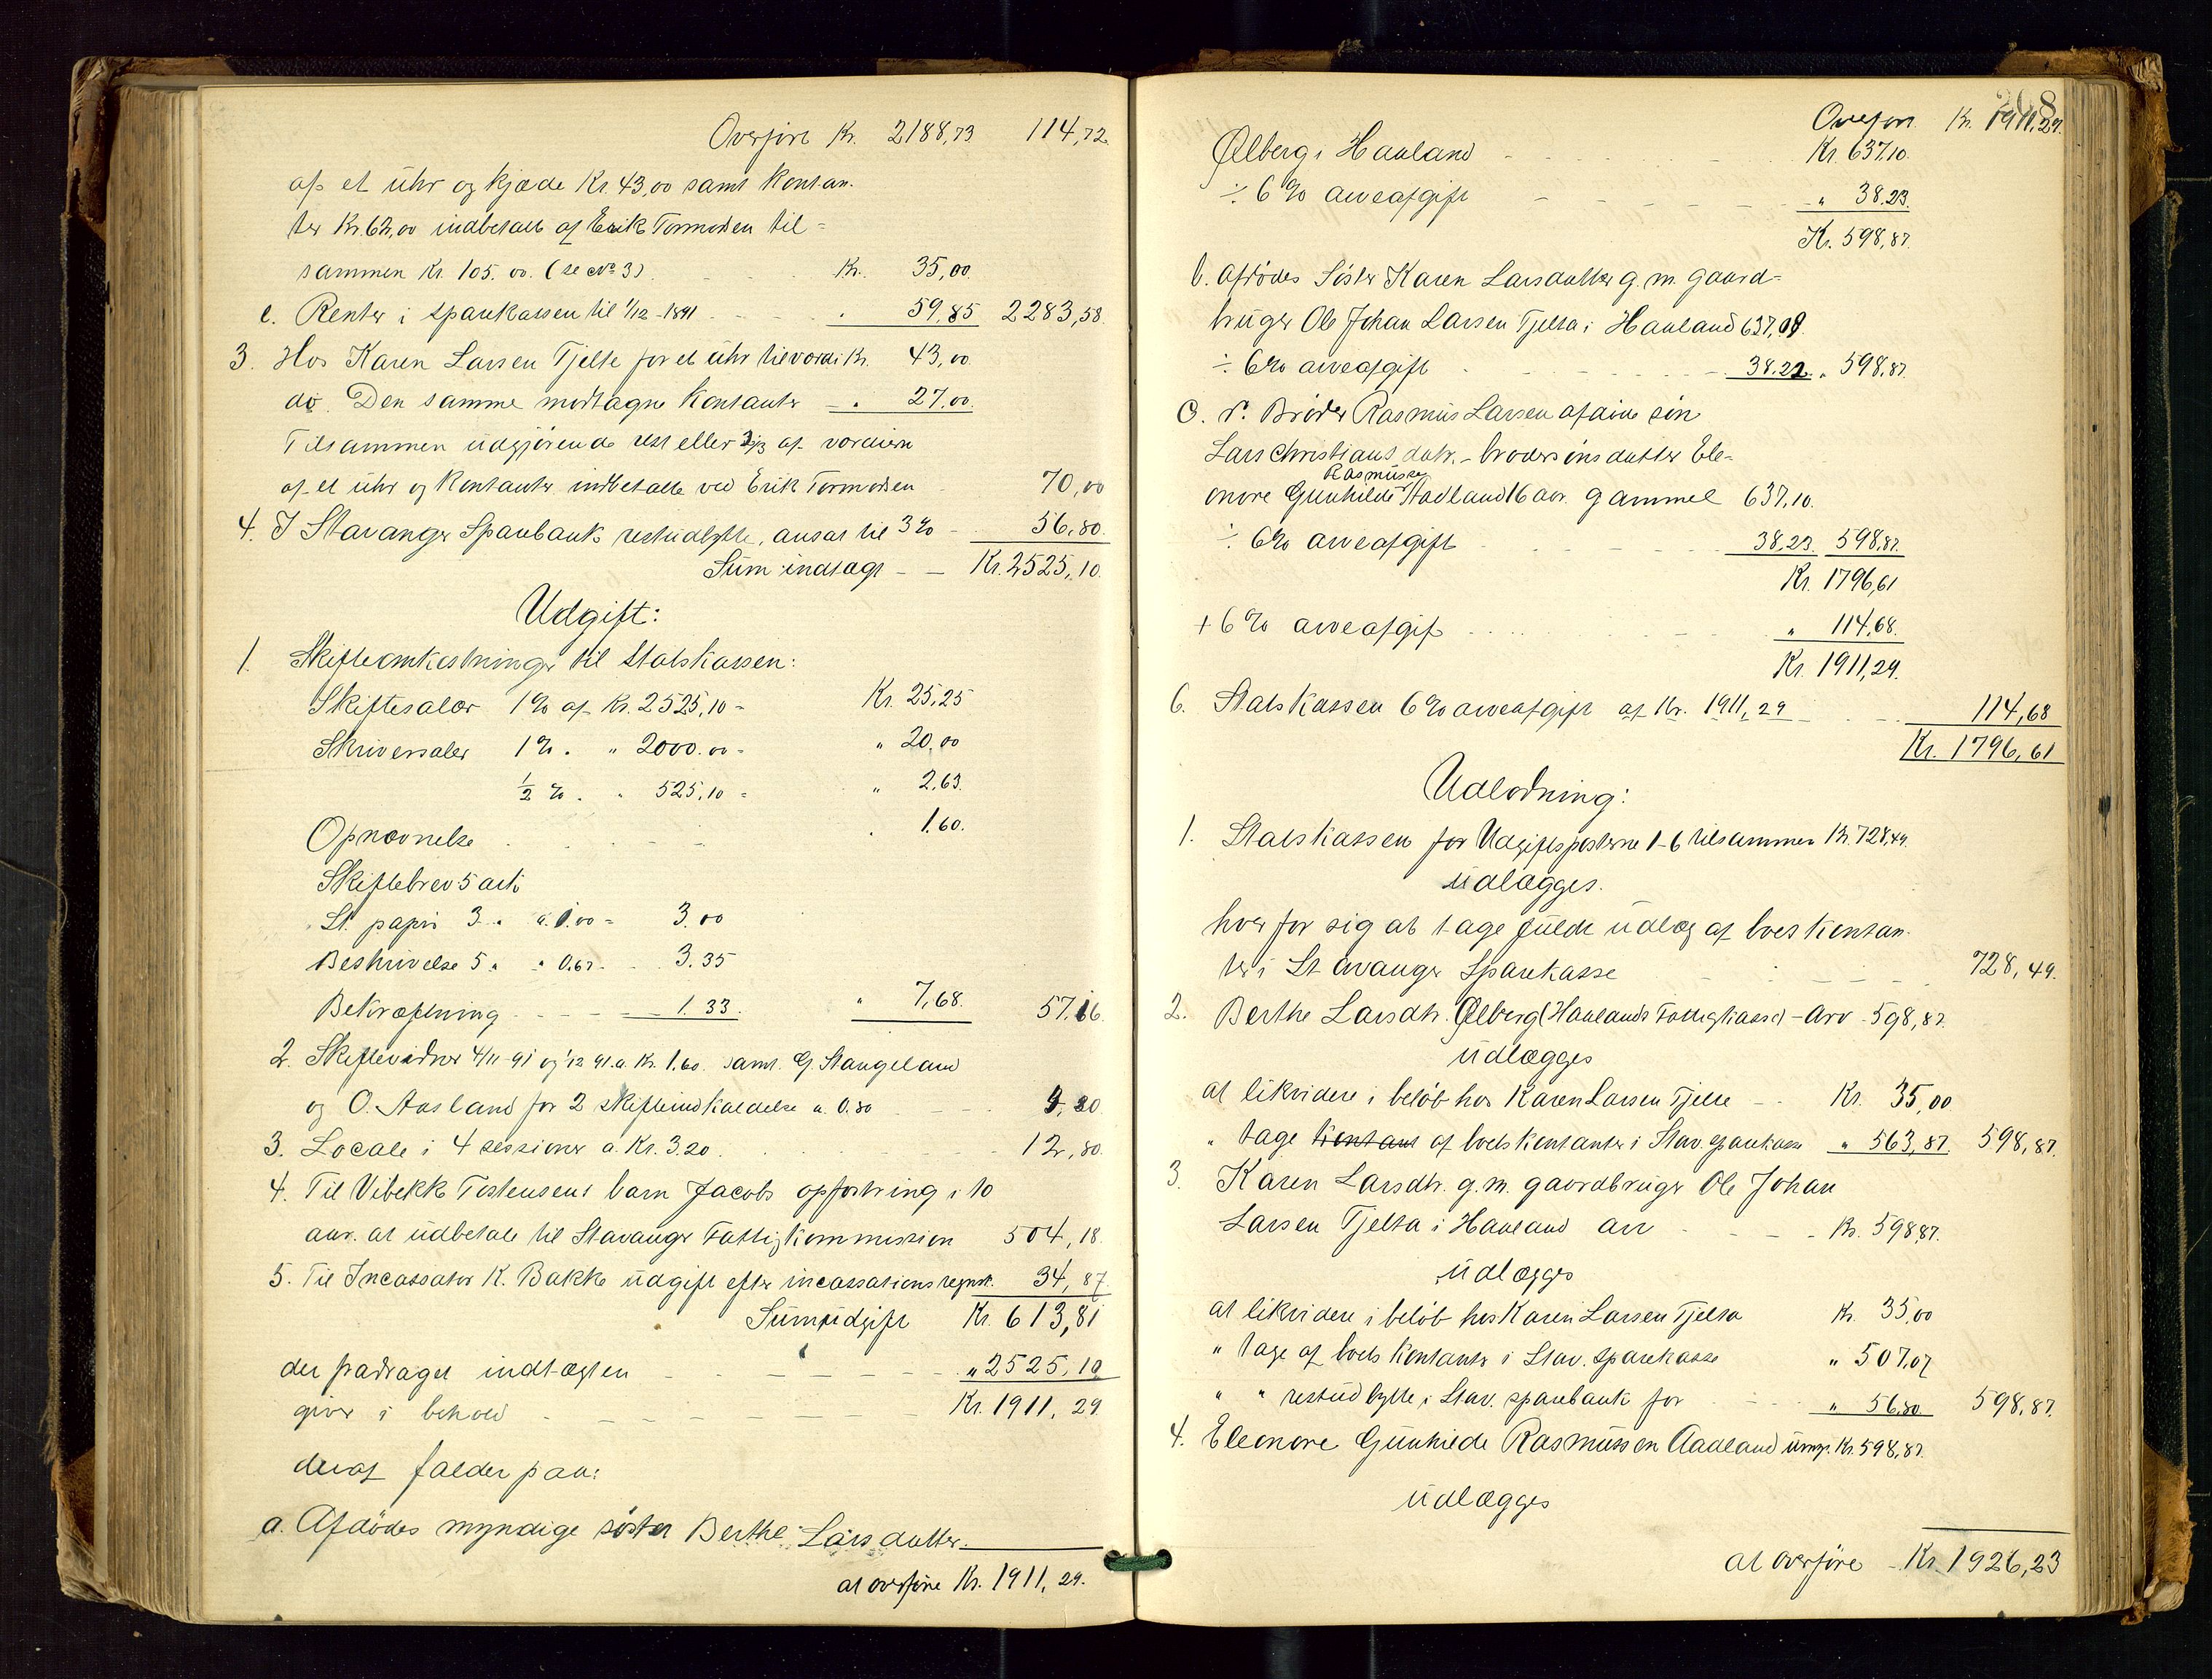 Overføre Kr. 2188,73 114,72
af et Uhr og kjæde Kr. 43,00 samt Kontan-
ter Kr. 62,00 indbetalt af Erik Tormodsen til=
sammen Kr. 105.00. (se No 3) Kr. 35,00
e. Renter i Sparekassen til 1/12-1891 " 59,85 2283,58
3. Hos Karen Larsen Tjelte for et Uhr til værdi Kr. 43,00
do. Den samme modtagne Kontanter - " 27,00.
Tilsammen udgjørende rest eller 2/3 af værdien
af et Uhr og Kontanter indbetalte ved Erik Tormodsen 70,00
4. I Stavanger Sparebank restudbytte, ansat til 3% - 56,80.
Sum indtægt - - Kr. 2525,10.
Udgift:
1. Skifteomkostninger til Statskassen:
Skiftesalær 1% af Kr. 2525,10 = Kr. 25,25
Skriversalær 1% . " 2000.00 = " 20,00
1/2 % . " 525,10 = " 2,63.
Opnævnelse . 1.60.
Skiftebrev 5 ark
St. papir 3 " a 1.00 = 3.00
Beskrivelse 5 " " 0.67 - 3.35
Bekræftning 1.33. " 7,68. 57.16
2. Skiftevidner 4/11-91 og 1/12 91. a Kr. 1.60. samt G. Stangeland
og O. Aasland for 2 skifteindkaldelse a. 0.80 4.80
3. Locale i 4 sessioner a. Kr. 3.20. 12,80.
4. Til Vibekke Torstensens barn Jacobs opfostring i 10
aar. at udbetale til Stavanger Fattigkommission 504,18.
5. Til Incassator K. Bakke udgift efter incassationsregnsk. 34,87
Sum udgift Kr. 613,81
der fradraget indtægten " 2525,10
giver i behold Kr. 1911,29.
deraf falder paa:
a. Afdødes myndige søster Berthe Larsdatter.
at overføre Kr. 1911,29.
208
Overført Kr. 1911,29.
Ølberg i Haaland Kr. 637.10.
÷ 6% arveafgift " 38.23.
Kr. 598,87.
b. Afdødes Søster Karen Larsdatter g. m. gaard-
bruger Ole Johan Larsen Tjelta i Haaland 637,09.
÷ 6% arveafgift 38.22 " 598,87.
c. d. Broder Rasmus Larsen afdøde søn
Lars Christians datr. - brodersøns datter Ele-
Rasmussen
onore Gunhilde Aadland 16 aar. gammel 637,10.
÷ 6% arveafgift 38,23. 598,87.
Kr. 1796,61
+ 6% arveafgift " 114,68.
Kr. 1911,29.
6. Statskassen 6% arveafgift af Kr. 1911,29 114,68
Kr. 1796,61
Udlodning:
1. Statskassen for Udgiftsposterne 1-6 tilsammen Kr. 728,49.
udlægges.
hver for sig at tage fulde udlæg af boets kontan-
ter i Stavanger Sparekasse 728,49.
2. Berthe Larsdtr. Ølberg (Haalands Fattigkasse) - Arv - 598,87.
udlægges
at likvidere i beløb hos Karen Larsen Tjelte Kr. 35,00
" tage Kontant af boets kontanter i Stav. Sparekasse " 563,87. 598,87.
3. Karen Larsdtr. g. m. gaardbruger Ole Johan
Larsen Tjelta i Haaland arv Kr. 598,87.
udlægges
at likvidere i beløb hos Karen Larsen Tjelta Kr. 35,00
" tage af boets kontanter i Stav. Sparekasse " 507,07
" " restudbytte i Stav. sparebank for " 56.80 598,87.
4. Eleonore Gunhilde Rasmussen Aadland umyn. Kr. 598,87.
udlægges
at overføre - Kr. 1926,23